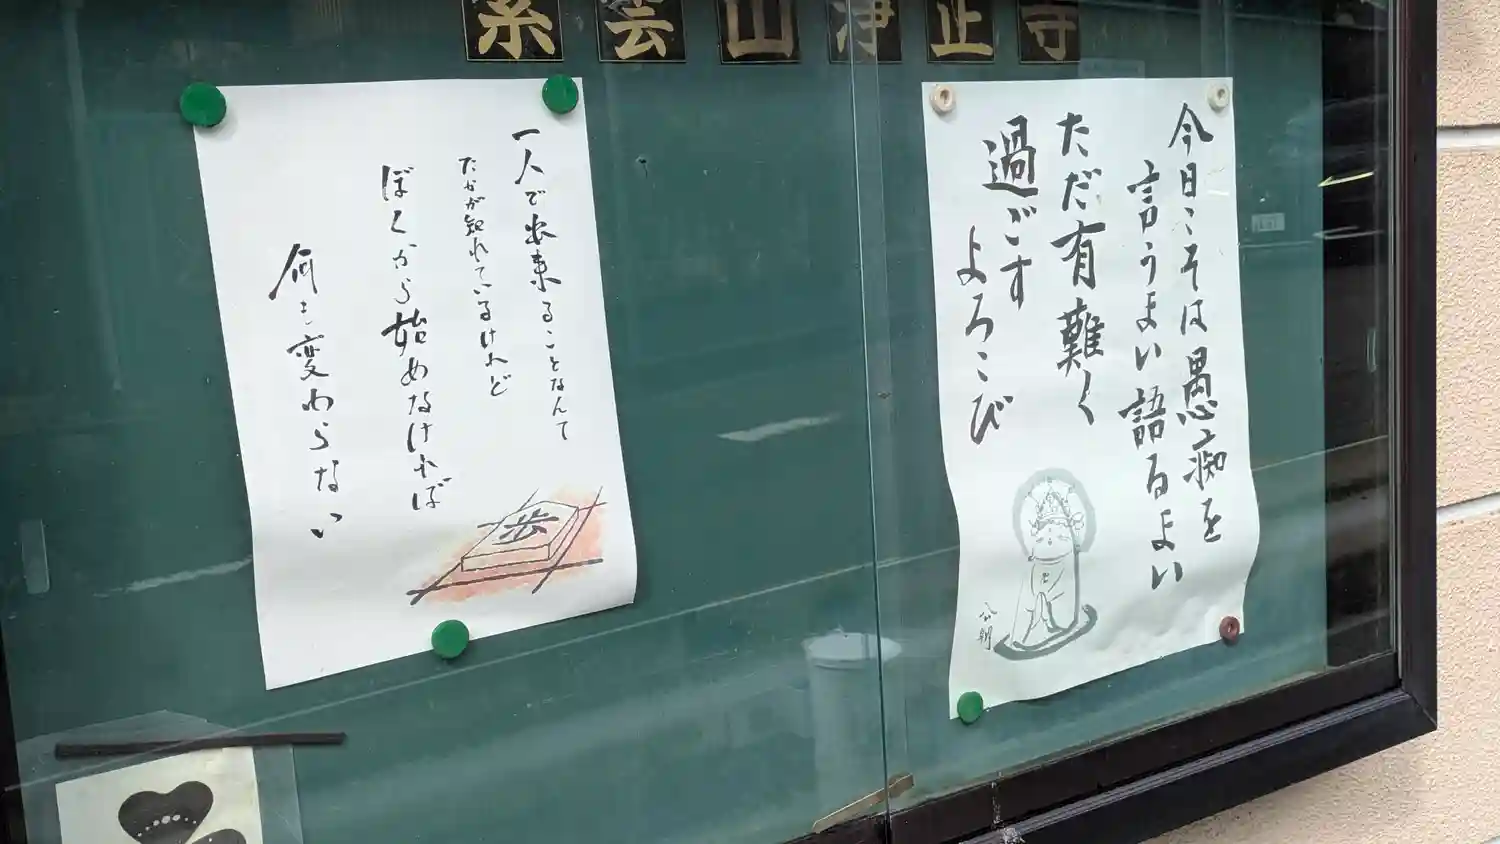 紫雲山浄正寺
今日こそは愚痴を
言うまい語るまい
ただ有難く
過ごす
よろこび
一人で出来ることなんて
たかが知れているけれど
ぼくから始めなければ
何も変わらない
歩